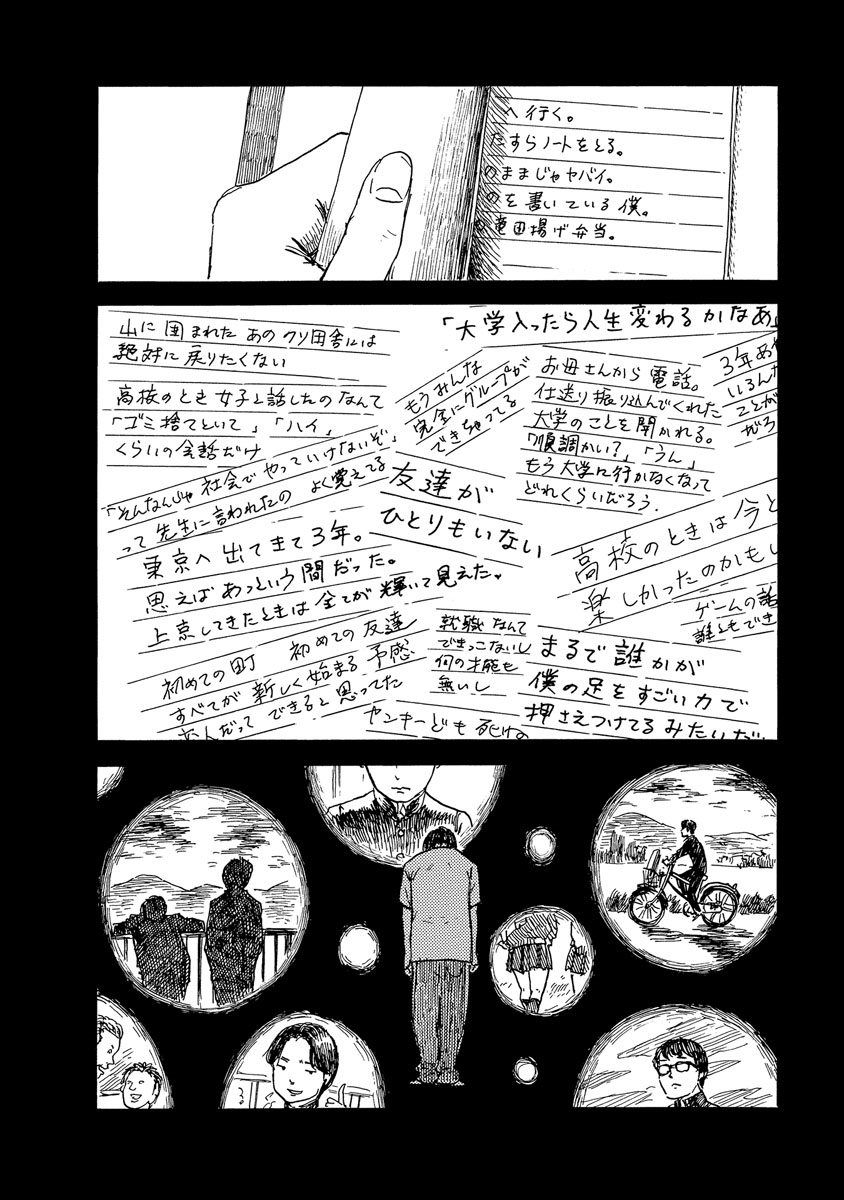 へ行く。
たすらノートをとる。
のままじゃヤバイ。
のを書いている僕。
竜田揚げ弁当。
「大学入ったら人生変わるかなあ」
山に囲まれたあのクソ田舎には
絶対に戻りたくない
高校のとき女子と話したのなんて
「ゴミ捨てといて」「ハイ」
くらいの会話だけ
もうみんな
完全にグループが
できちゃってる
お母さんから電話。
仕送り振り込んでくれた
大学のことを聞かれる。
「順調かい?」「うん」
もう大学に行かなくなって
どれくらいだろう.
3年あ
いるん
ことが
だろ
「そんなんじゃ社会でやっていけないぞ」
って先生に言われたの よく覚えてる
友達が
ひとりもいない
東京へ出てきて3年。
思えばあっという間だった。
上京してきたときは全てが輝いて見えた。
高校のときは今と
楽しかったのかもし
ゲームの話
誰ともでき
初めての町 初めての友達
すべてが新しく始まる予感
なんだって できると思ってた
就職なんて
できっこないし
何の才能も
無いし
まるで誰かが
僕の足をすごい力で
押さえつけてるみたいだ
ヤンキーども死ね